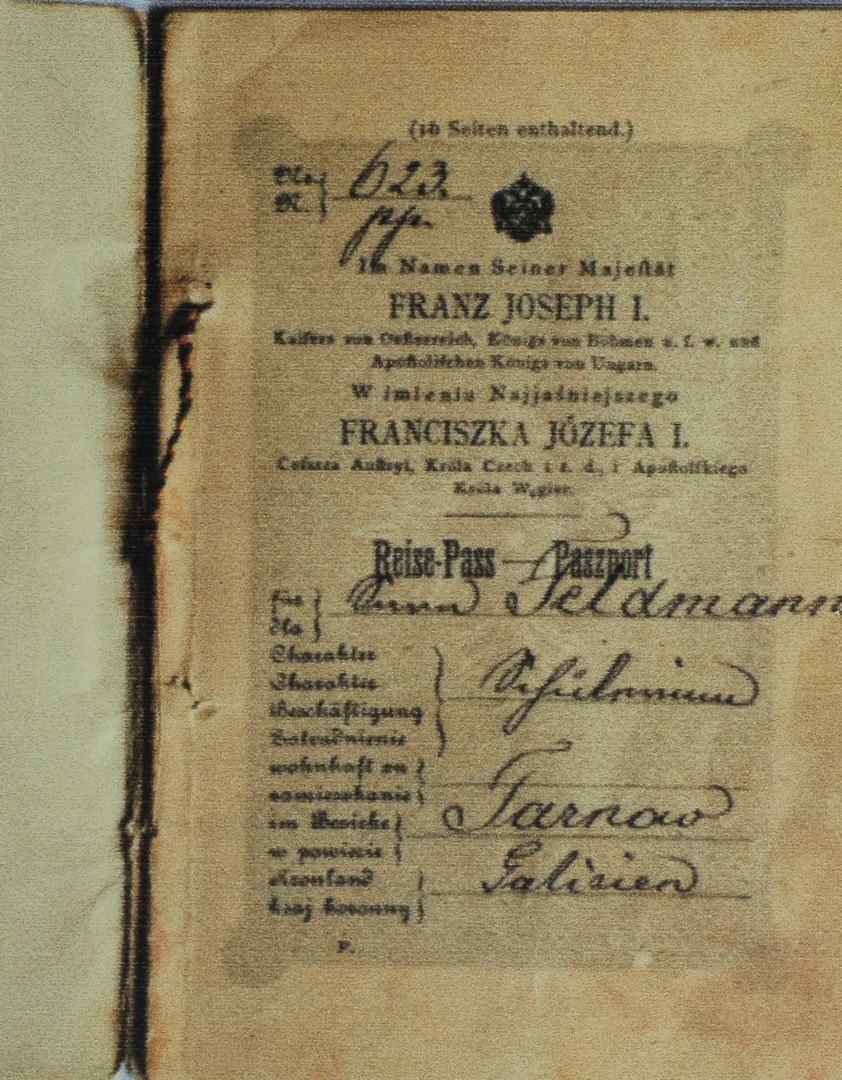 (16 Seiten enthaltend.)
No 623.
N. pp.
Im Namen Seiner Majeſtät
FRANZ JOSEPH I.
Kaiſers von Oeſterreich, Königs von Böhmen u. ſ. w. und
Apoſtoliſchen Königs von Ungarn.
W imieniu Najjaśniejszego
FRANCISZKA JÓZEFA I.
Ceſarza Auſtryi, Króla Czech i t. d., i Apoſtolſkiego
Króla Węgier.
Reise-Pass — Paszport
für Feldmann
dla
Charakter
Charakter Schülerinnen
Beschäftigung
Zatrudnienie
wohnhaft zu
zamieszkanie
im Bezirke Tarnow
w powiecie
Kronland Galizien
kraj koronny
F.